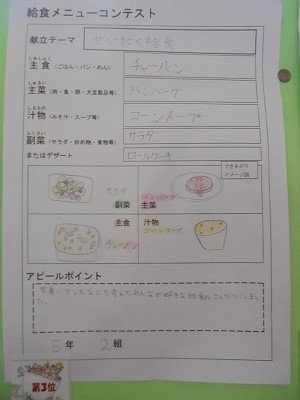 給食メニューコンテスト
献立テーマ ぜいたく給食
しゅしょく
主食(ごはん・パン・めん) チャーハン
しゅさい
主菜(肉・魚・卵・大豆製品等) ハンバーグ
しるもの
汁物(みそ汁・スープ等) コーンスープ
ふくさい
副菜(サラダ・炒め物・煮物等) サラダ
またはデザート ロールケーキ
できあがり
イメージ図
サラダ ハンバーグ
副菜 主菜
主食 汁物
チャーハン コーンスープ
アピールポイント
栄養バランスなども考えて、みんなが好きな給食のこんだてにしまし
た。
5年 2組
第3位